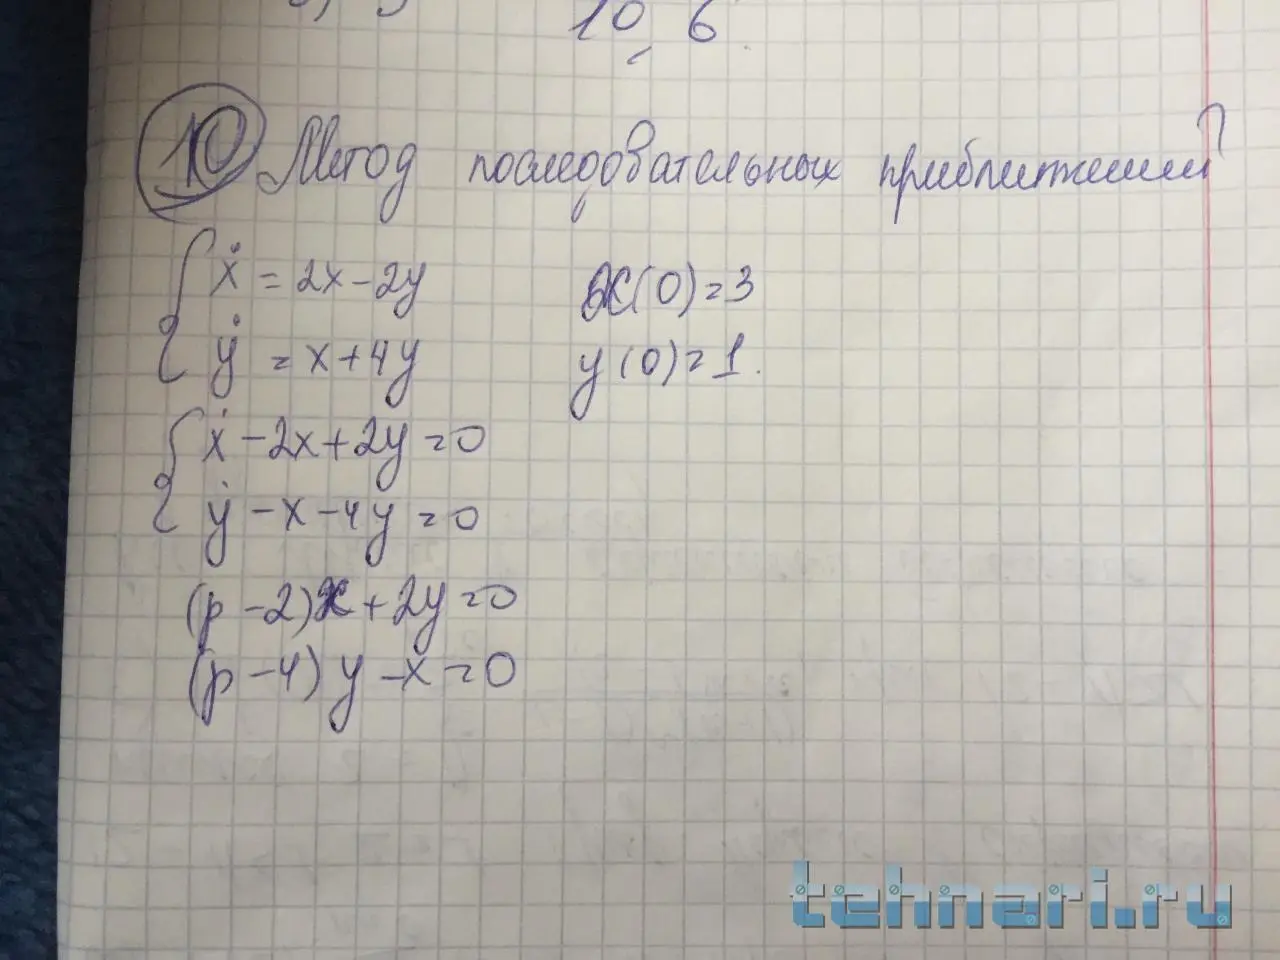 10 6
10 Метод последовательных приближений?
ẋ = 2x - 2y x(0) = 3
ẏ = x + 4y y(0) = 1.
ẋ - 2x + 2y = 0
ẏ - x - 4y = 0
(p - 2)x + 2y = 0
(p - 4) y - x = 0
tehnari.ru